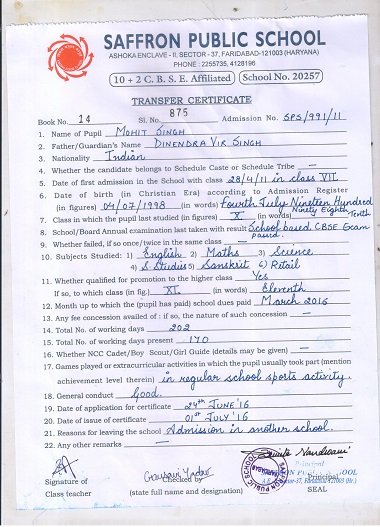 SAFFRON PUBLIC SCHOOL
ASHOKA ENCLAVE - II, SECTOR - 37, FARIDABAD-121003 (HARYANA)
PHONE : 2255735, 4128196
10 + 2 C. B. S. E. Affiliated School No. 20257
TRANSFER CERTIFICATE
Book No. 14 Sl. No. 875 Admission No. SPS/991/11
1. Name of Pupil MOHIT SINGH
2. Father/Guardian's Name DINENDRA VIR SINGH
3. Nationality Indian
4. Whether the candidate belongs to Schedule Caste or Schedule Tribe —
5. Date of first admission in the School with class 28/4/11 in class VII
6. Date of birth (in Christian Era) according to Admission Register
(in figures) 04/07/1998 (in words) Fourth July Nineteen Hundred Ninety Eighth
7. Class in which the pupil last studied (in figures) X (in words) Tenth
8. School/Board Annual examination last taken with result School based CBSE Exam passed.
9. Whether failed, if so once/twice in the same class —
10. Subjects Studied : 1) English 2) Maths 3) Science
4) S.Studies 5) Sanskrit 6) Retail
11. Whether qualified for promotion to the higher class Yes
If so, to which class (in fig.) XI (in words) Eleventh
12. Month up to the (pupil has paid) school dues paid March 2016
13. Any fee concession availed of : if so, the nature of such concession —
14. Total No. of working days 202
15. Total No. of working days present 170
16. Whether NCC Cadet/Boy Scout/Girl Guide (details may be given) —
17. Games played or extracurricular activities in which the pupil usually took part (mention
achievement level therein) in regular school sports activity.
18. General conduct Good.
19. Date of application for certificate 29th JUNE'16
20. Date of issue of certificate 01st JULY'16
21. Reasons for leaving the school Admission in another school.
22. Any other remarks —
Signature of
Class teacher
Checked by
(state full name and designation)
Principal
SAFFRON PUBLIC SCHOOL
Principal
SEAL